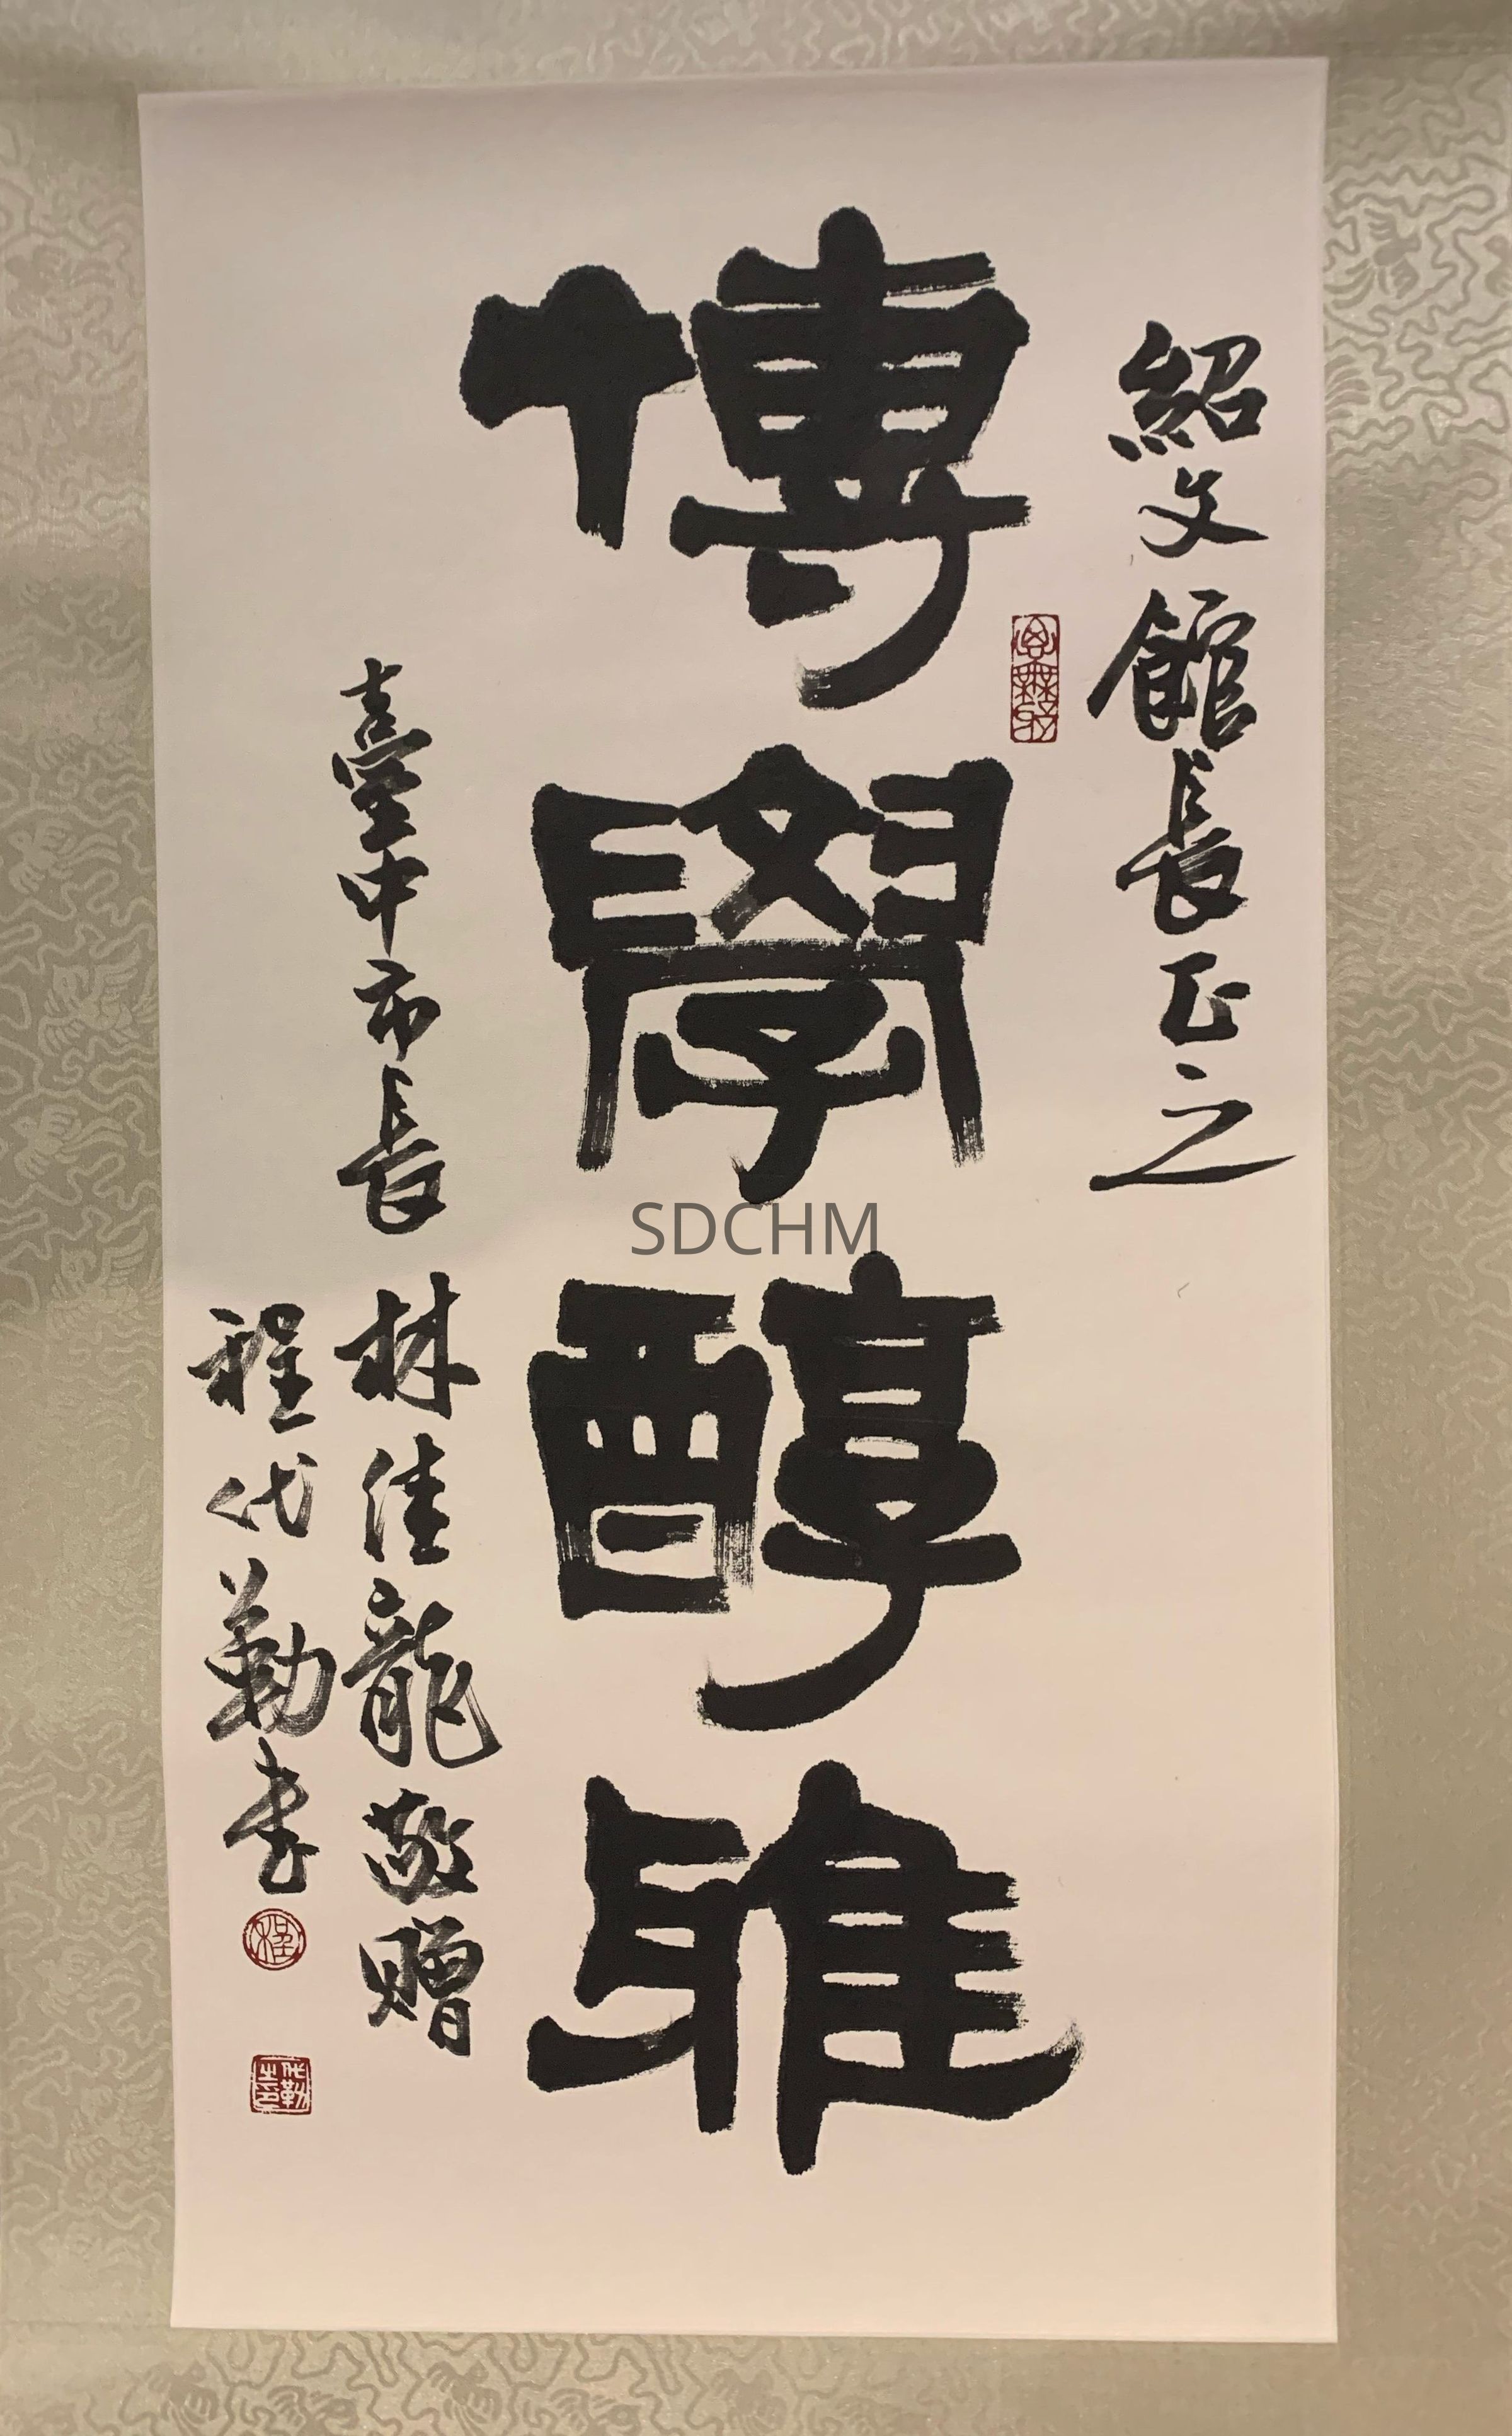 紹文館長正之
博學醇雅
臺中市長 林佳龍敬贈
程代勒書
程
代勒之印
SDCHM